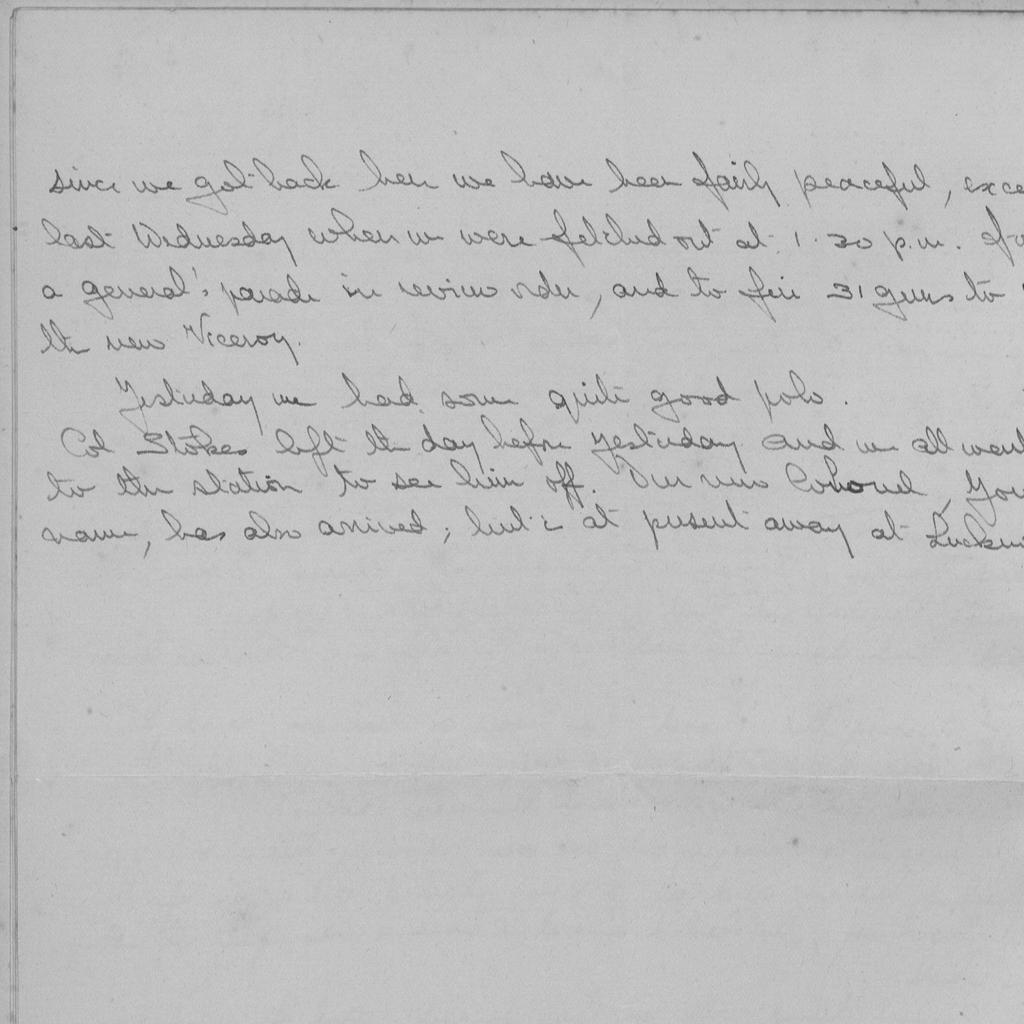 since we got back here we have been fairly peaceful, exce
last Wednesday when we were fetched out at 1.30 p.m. for
a general's parade in review order, and to fire 31 guns to
the new Viceroy.
Yesterday we had some quite good polo.
Col Stokes left the day before yesterday and we all went
to the station to see him off. Our new Colonel, You
name, has also arrived; but is at present away at Luckn